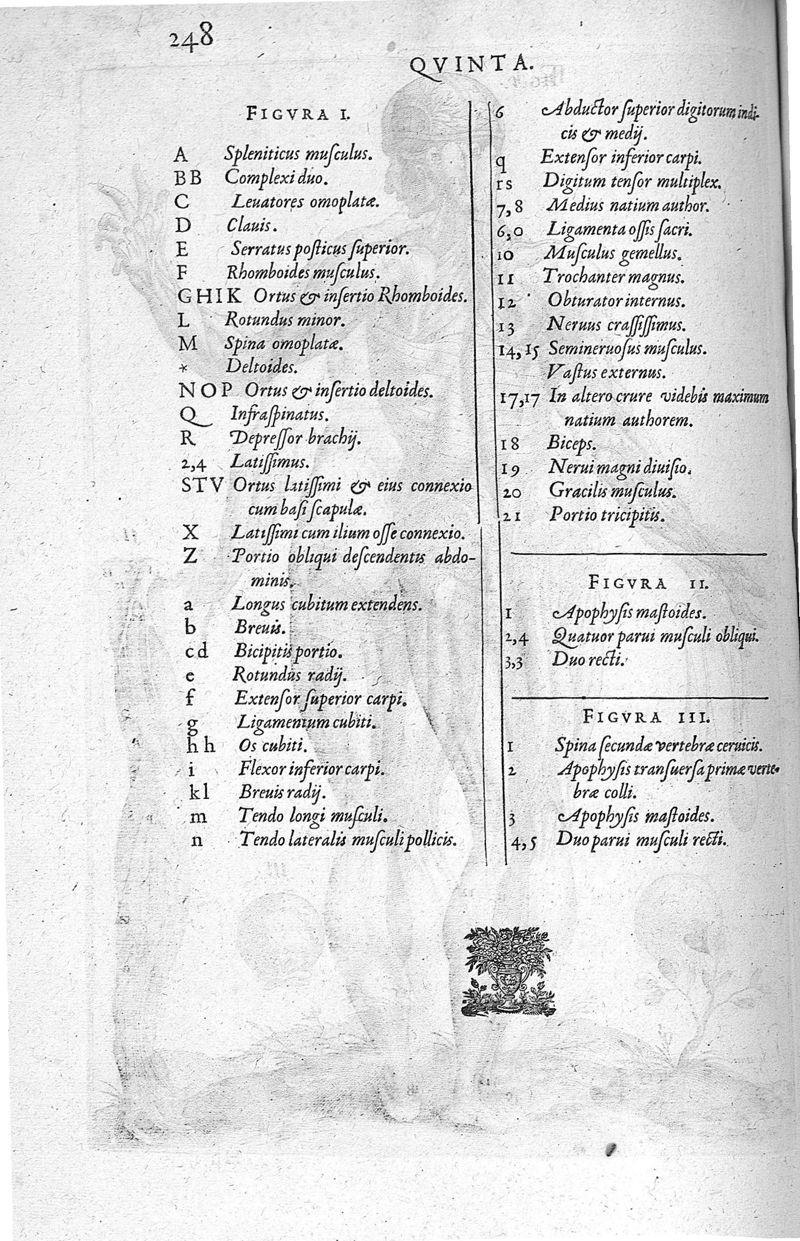 248
QVINTA.
FIGVRA I.
A Spleniticus muſculus.
BB Complexi duo.
C Leuatores omoplatæ.
D Clauis.
E Serratus poſticus ſuperior.
F Rhomboides muſculus.
GHIK Ortus & inſertio Rhomboides.
L Rotundus minor.
M Spina omoplatæ.
* Deltoides.
NOP Ortus & inſertio deltoides.
Q Infraſpinatus.
R Depreſſor brachij.
2,4 Latiſſimus.
STV Ortus latiſſimi & eius connexio
cum baſi ſcapulæ.
X Latiſſimi cum ilium oſſe connexio.
Z Portio obliqui deſcendentis abdo-
minis.
a Longus cubitum extendens.
b Breuis.
cd Bicipitis portio.
e Rotundus radij.
f Extenſor ſuperior carpi.
g Ligamentum cubiti.
hh Os cubiti.
i Flexor inferior carpi.
kl Breuis radij.
m Tendo longi muſculi.
n Tendo lateralis muſculi pollicis.
6 Abductor ſuperior digitorum indi-
cis & medij.
q Extenſor inferior carpi.
rs Digitum tenſor multiplex.
7,8 Medius natium author.
6,0 Ligamenta oſſis ſacri.
10 Muſculus gemellus.
11 Trochanter magnus.
12 Obturator internus.
13 Neruus craſſiſſimus.
14,15 Semineruoſus muſculus.
Vaſtus externus.
17,17 In altero crure videbis maximum
natium authorem.
18 Biceps.
19 Nerui magni diuiſio.
20 Gracilis muſculus.
21 Portio tricipitis.
FIGVRA II.
1 Apophyſis maſtoides.
2,4 Quatuor parui muſculi obliqui.
3,3 Duo recti.
FIGVRA III.
1 Spina ſecundæ vertebræ ceruicis.
2 Apophyſis tranſuerſa primæ verte-
bræ colli.
3 Apophyſis maſtoides.
4,5 Duo parui muſculi recti.